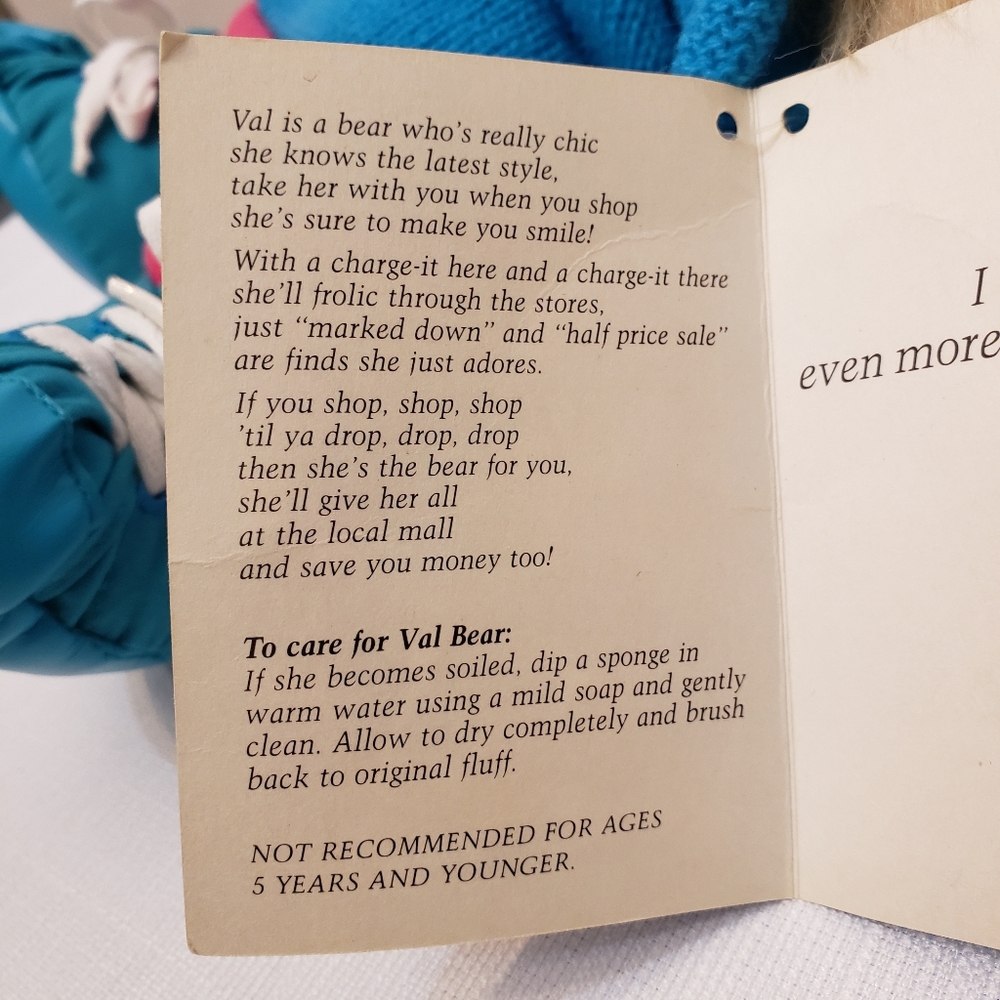 Val is a bear who's really chic
she knows the latest style,
take her with you when you shop
she's sure to make you smile!
With a charge-it here and a charge-it there
she'll frolic through the stores,
just “marked down” and “half price sale”
are finds she just adores.
If you shop, shop, shop
'til ya drop, drop, drop
then she's the bear for you,
she'll give her all
at the local mall
and save you money too!
To care for Val Bear:
If she becomes soiled, dip a sponge in
warm water using a mild soap and gently
clean. Allow to dry completely and brush
back to original fluff.
NOT RECOMMENDED FOR AGES
5 YEARS AND YOUNGER.
I
even more